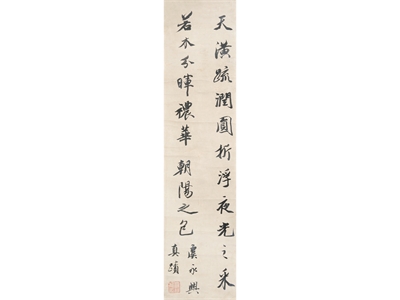 天潢疏潤圓折浮夜光之采
若木分暉穠華朝陽之色
虞永興
真蹟